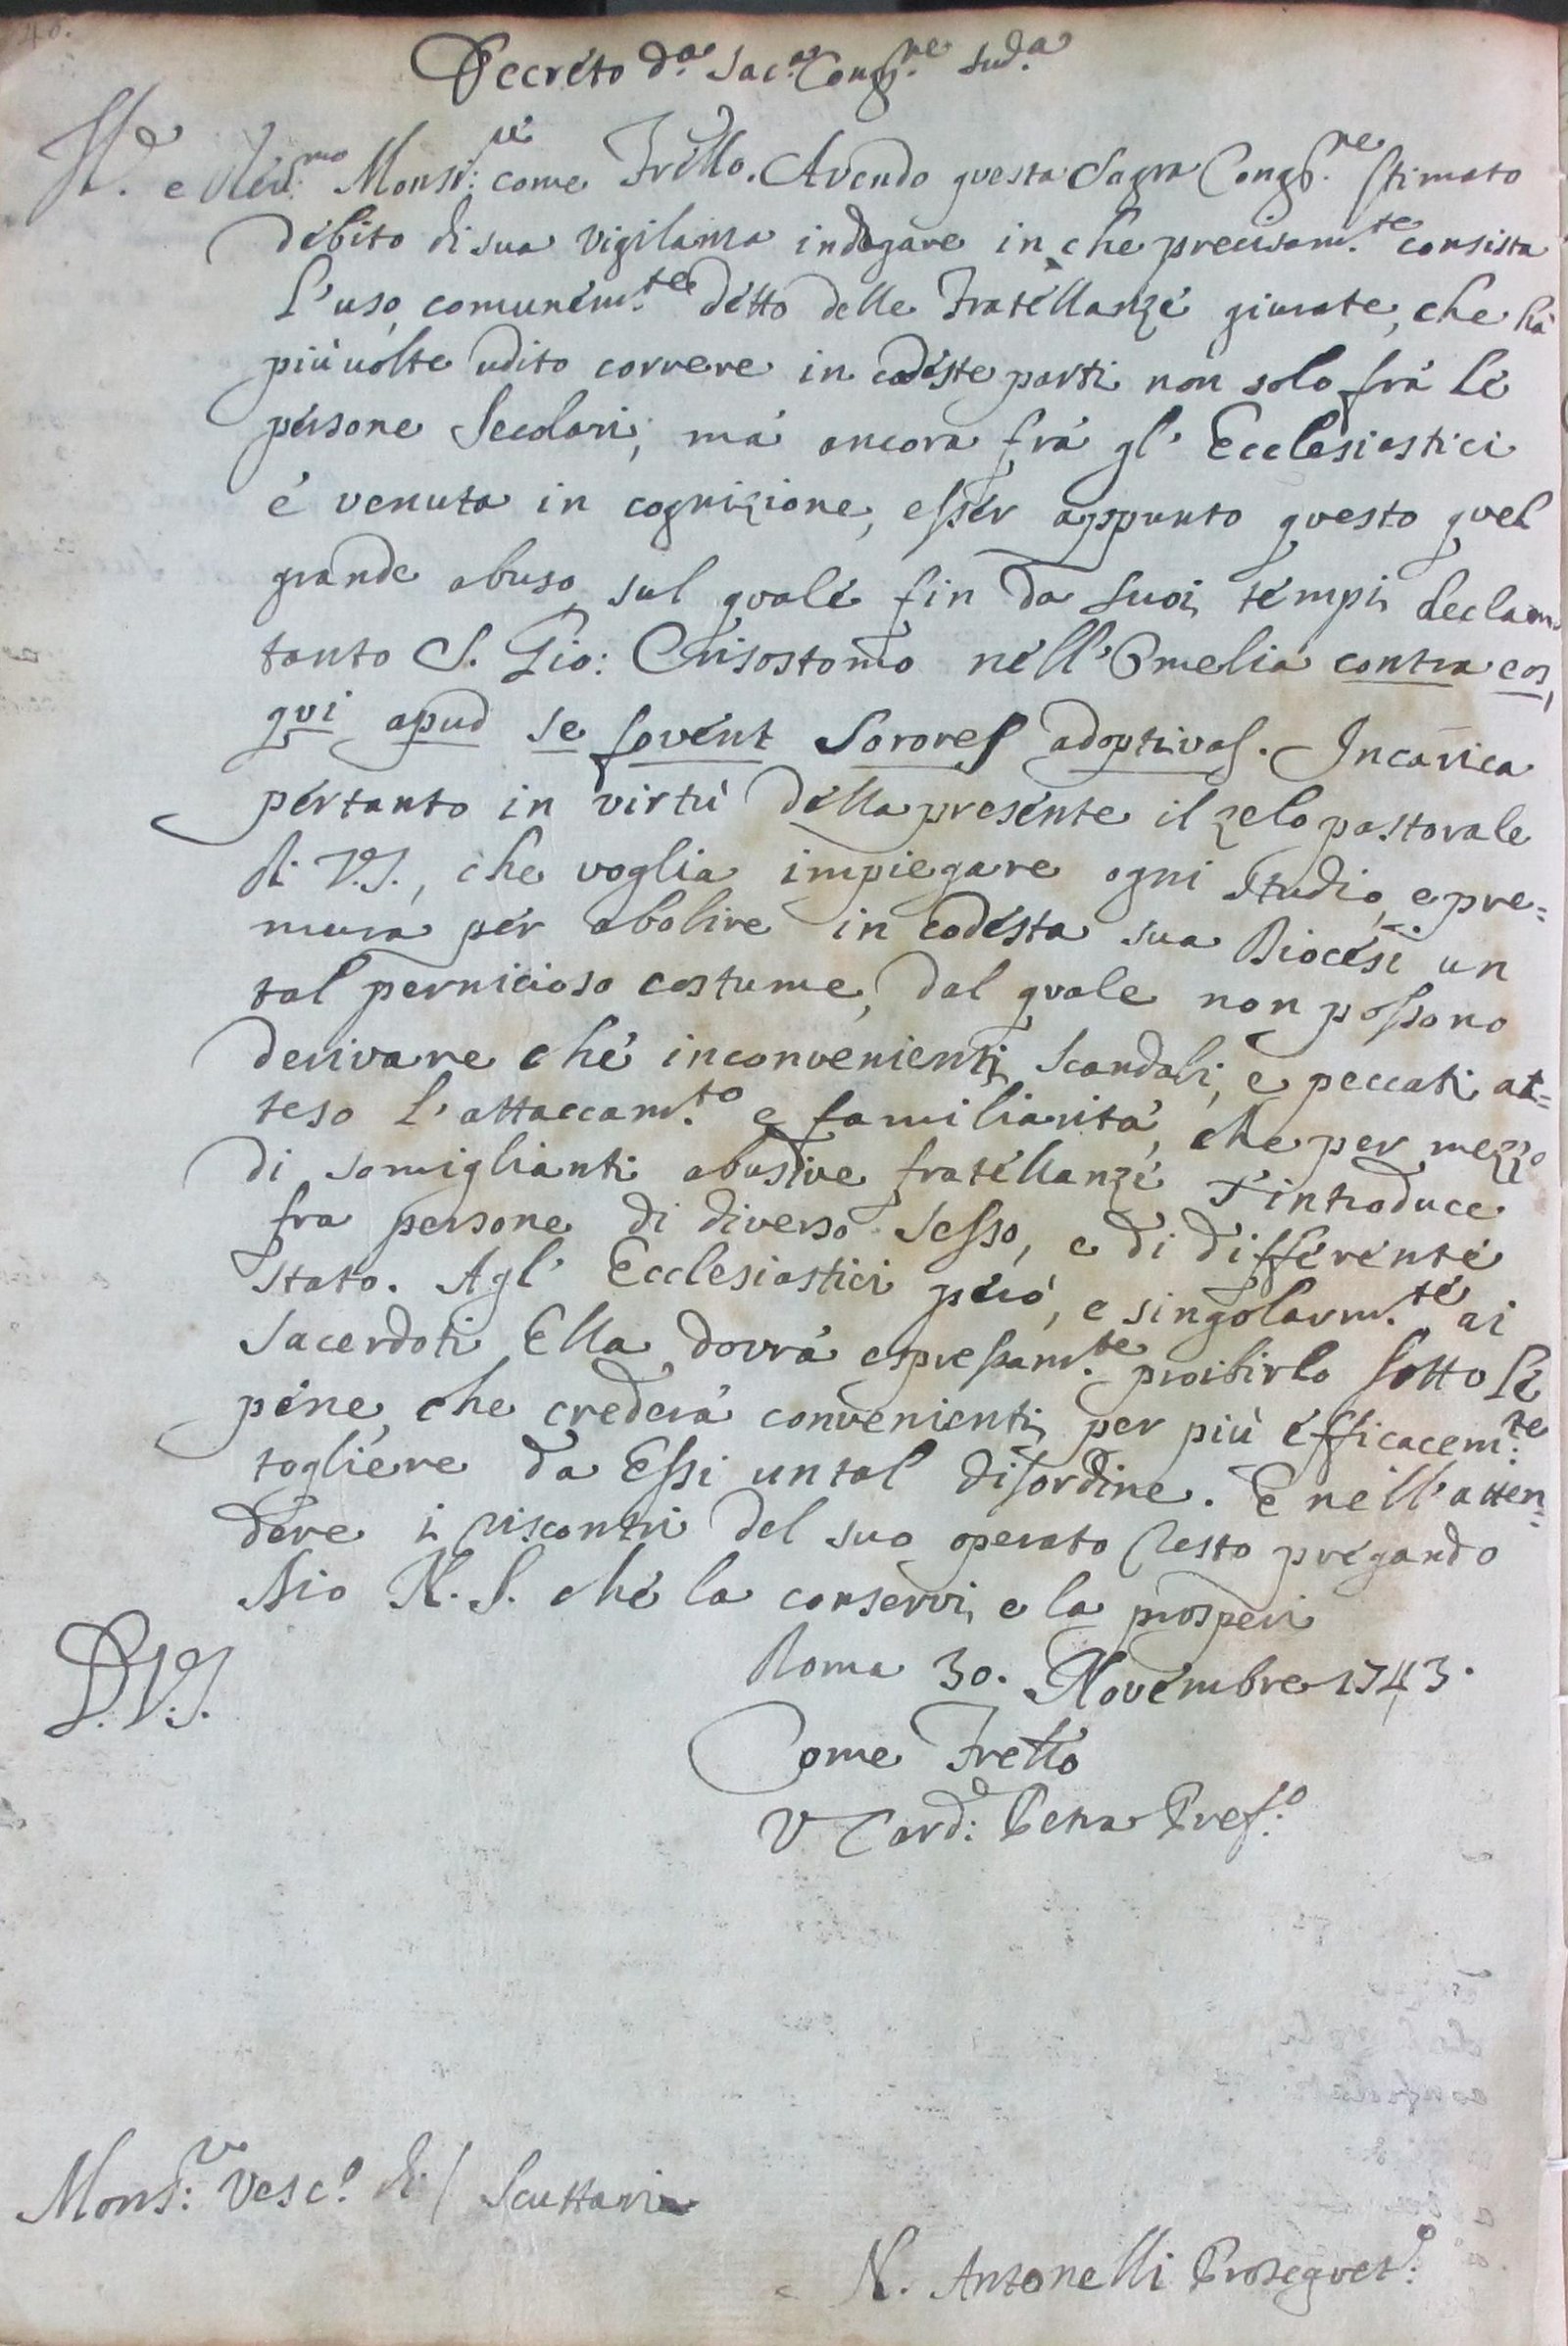 40.
Decreto d.a Sac.a Cong.ne sud.a
Ill.e e Rev.mo Monsi.re come Frello. Avendo questa Sagra Cong.ne stimato
debito di sua vigilanza indagare in che precisam.te consista
l'uso comunem.te detto delle Fratellanze giurate, che hà
più uolte udito correre in codeste parti non solo frà le
persone Secolari, mà ancora frà gl' Ecclesiastici
è venuta in cognizione, esser appunto questo quel
grande abuso, sul quale fin da suoi tempi declam
tanto S. Gio: Crisostomo nell'Omelia contra eos,
qui apud se fovent Sorores adoptivas. Incarica
pertanto in virtù della presente il zelo pastorale
di V.S., che voglia impiegare ogni studio, e pre=
mura per abolire in codesta sua Diocesi un
tal pernicioso costume, dal quale non possono
derivare che inconvenienti, scandali, e peccati at=
teso l'attaccam.to e familiarità, che per mezzo
di somiglianti abusive fratellanze s'introduce
fra persone di diverso sesso, e di differente
stato. Agl' Ecclesiastici però, e singolarm.te ai
Sacerdoti Ella dovrà espressam.te proibirlo sotto le
pene, che crederà convenienti per più efficacem.te
togliere da Essi un tal disordine. E nell'atten=
dere i riscontri del suo operato resto pregando
Dio N. S. che la conservi, e la prosperi
Roma 30. Novembre 1743.
D.V.S.
Come Frello
V Card: Petra Pref.o
Mons.r Vesc.o di / Scuttari
N. Antonelli Prosegret.o